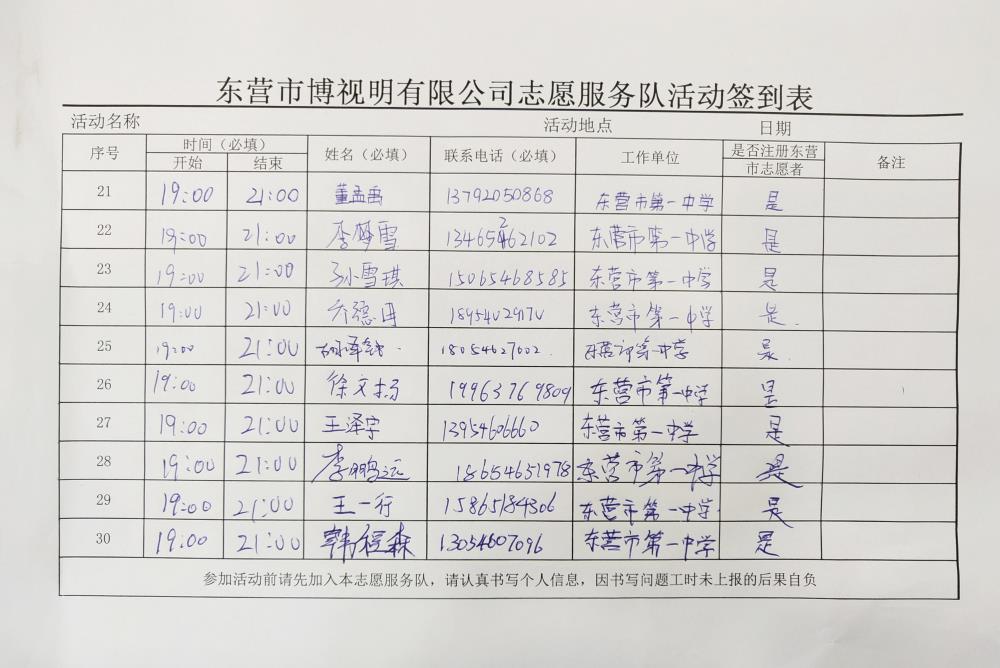 东营市博视明有限公司志愿服务队活动签到表
活动名称 活动地点 日期
序号 时间（必填） 姓名（必填） 联系电话（必填） 工作单位 是否注册东营市志愿者 备注
开始 结束
21 19:00 21:00 董孟禹 13792050868 东营市第一中学 是
22 19:00 21:00 李梦雪 13465462102 东营市第一中学 是
23 19:00 21:00 孙雪琪 15065468585 东营市第一中学 是
24 19:00 21:00 乔德冉 18954029170 东营市第一中学 是.
25 19:00 21:00 18054627002. 东营市第一中学 是.
26 19:00 21:00 徐文杨 19963769809 东营市第一中学 是
27 19:00 21:00 王泽宇 13954606660 东营市第一中学 是
28 19:00 21:00 李鹏远 18654651978 东营市第一中学 是
29 19:00 21:00 王一行 15865184306 东营市第一中学 是
30 19:00 21:00 韩程森 13054607096 东营市第一中学 是
参加活动前请先加入本志愿服务队，请认真书写个人信息，因书写问题工时未上报的后果自负